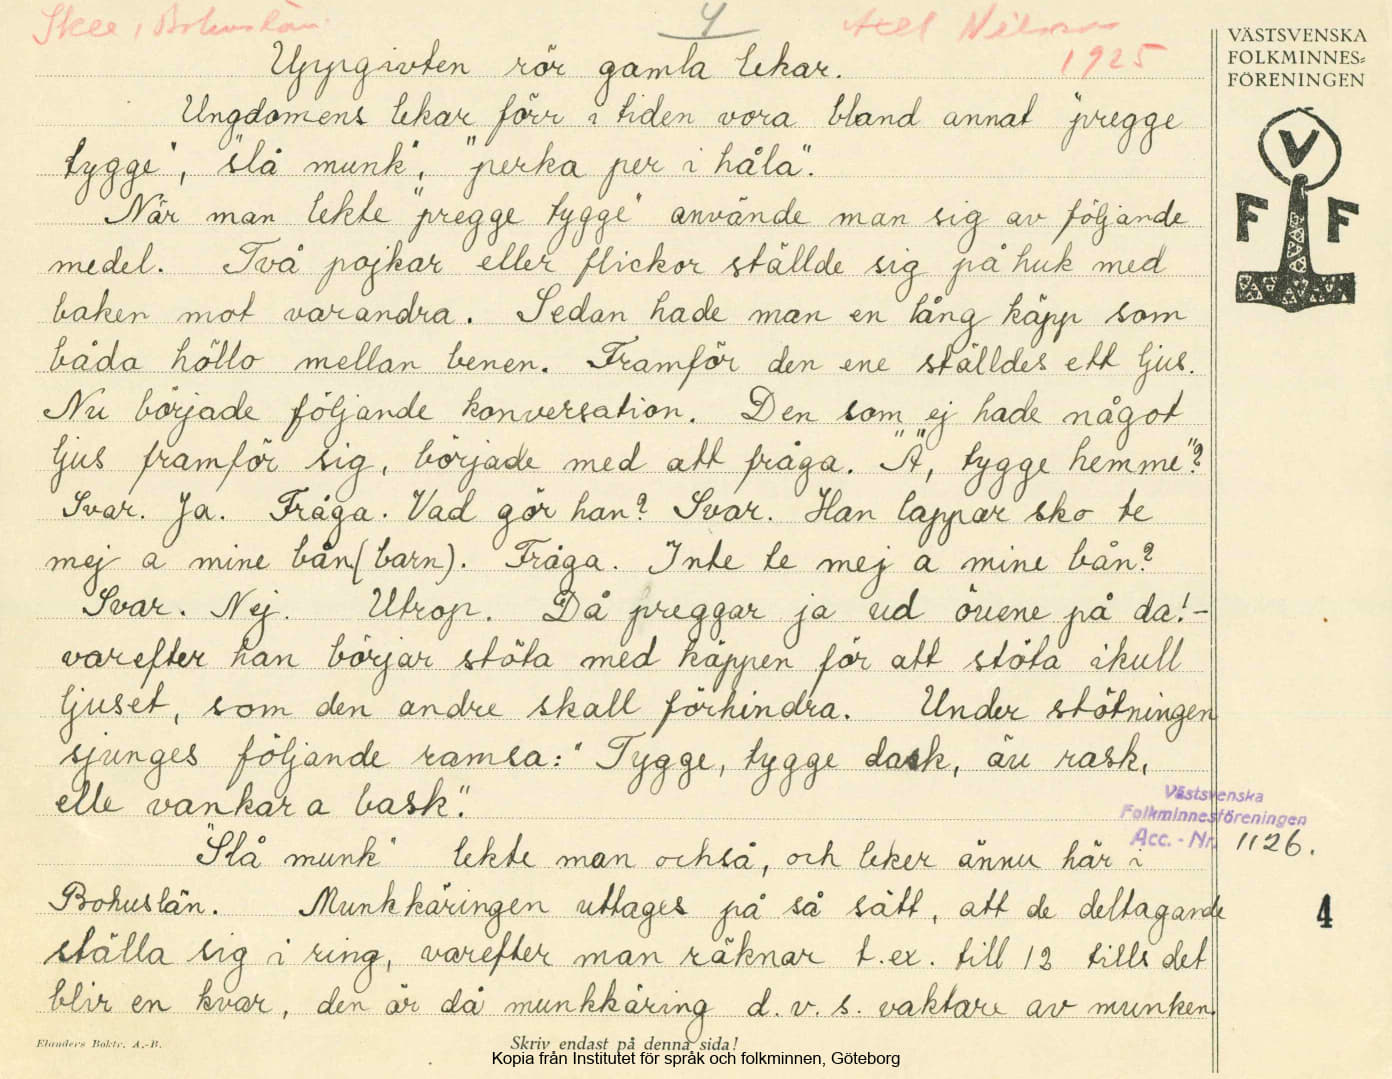 Skee, Bohuslän.
4
Axel Nilsson
1925
VÄSTSVENSKA
FOLKMINNES=
FÖRENINGEN
V
F F
Uppgivten rör gamla lekar.
Ungdomens lekar förr i tiden vora bland annat "pregge
tygge", "slå munk", "perka per i håla".
När man lekte "pregge tygge" använde man sig av följande
medel. Två pojkar eller flickor ställde sig på huk med
baken mot varandra. Sedan hade man en lång käpp som
båda höllo mellan benen. Framför den ene ställdes ett ljus.
Nu började följande konversation. Den som ej hade något
ljus framför sig, började med att fråga. "Ä", tygge hemme"?
Svar. Ja. Fråga. Vad gör han? Svar. Han lappar sko te
mej a mine bån (barn). Fråga. Inte te mej a mine bån?
Svar. Nej. Utrop. Då preggar ja ud övene på da! -
varefter han börjar stöta med käppen för att stöta ikull
ljuset, som den andre skall förhindra. Under stötningen
sjunges följande ramsa: "Tygge, tygge dask, äu rask,
elle vankar a bask".
"Slå munk" lekte man också, och leker ännu här i
Bohuslän. Munkkäringen uttages på så sätt, att de deltagande
ställa sig i ring, varefter man räknar t.ex. till 12 tills det
blir en kvar, den är då munkkäring d.v.s. vaktare av munken.
Västsvenska
Folkminnesföreningen
Acc. - Nr. 1126.
4
Elanders Boktr. A.-B.
Skriv endast på denna sida!
Kopia från Institutet för språk och folkminnen, Göteborg